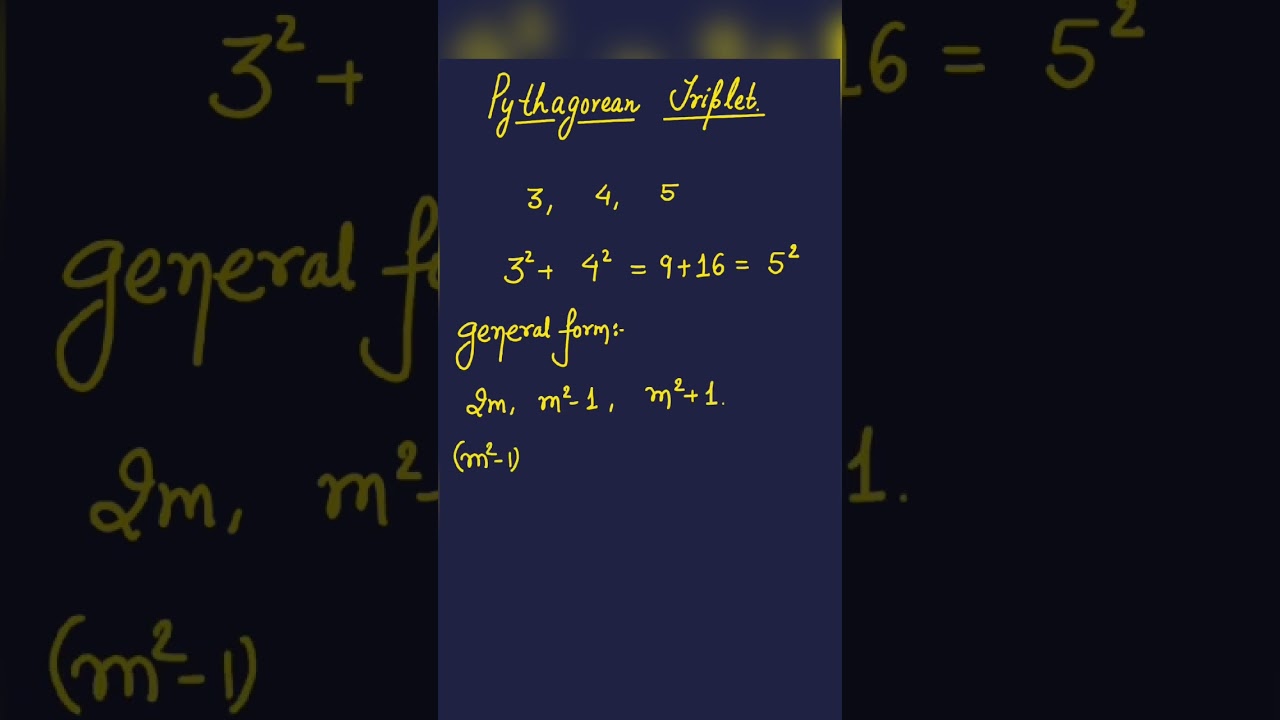 Pythagorean Triplet.
3, 4, 5
3² + 4² = 9+16 = 5²
general form:-
2m, m²-1, m²+1.
(m²-1)